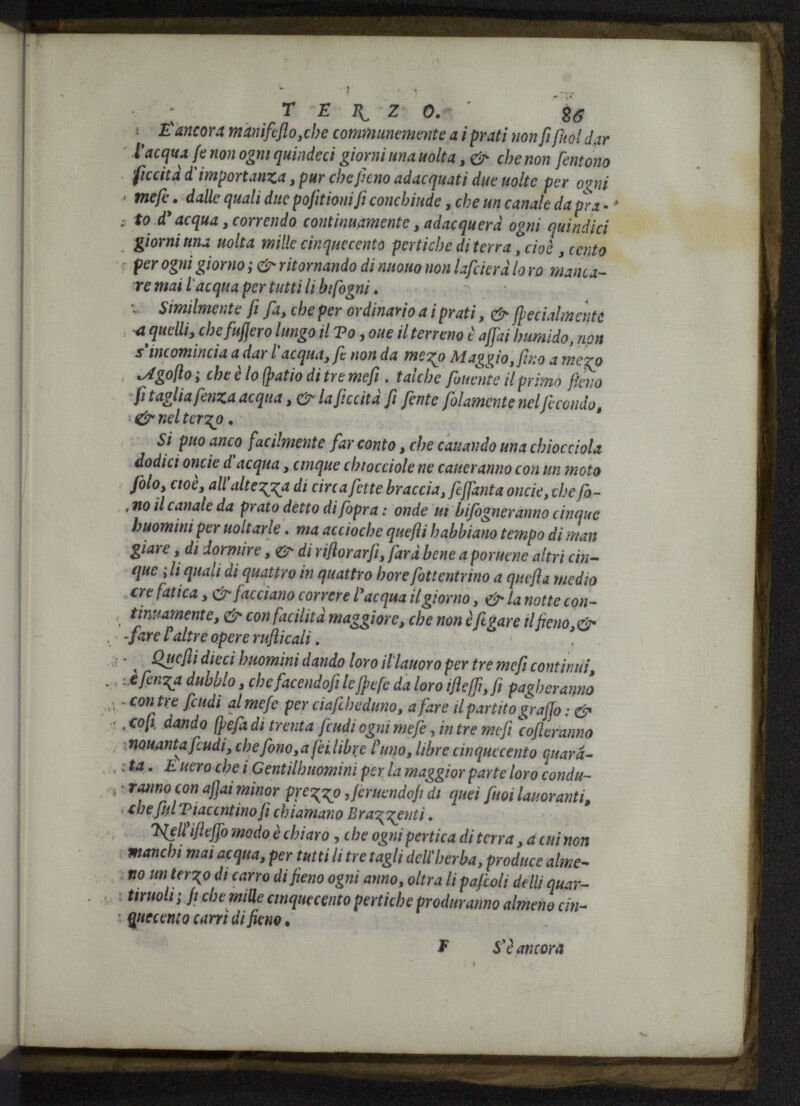 TERZO. 86
E' ancora manifeſto, che communemente a i prati non ſi ſuol dar
l'acqua ſe non ogni quindeci giorni una uolta, & che non ſentono
ſiccità d'importanza, pur che ſieno adacquati due uolte per ogni
meſe. dalle quali due poſitioni ſi conchiude, che un canale da pra-
to d'acqua, correndo continuamente, adacquerà ogni quindici
giorni una uolta mille cinquecento pertiche di terra, cioè, cento
per ogni giorno; & ritornando di nuouo non laſcierà loro manca-
re mai l'acqua per tutti li biſogni.
Similmente ſi fa, che per ordinario a i prati, & ſpecialmente
a quelli, che fuſſero lungo il Po, oue il terreno è aſſai humido, non
s'incomincia a dar l'acqua, ſe non da mezo Maggio, ſino a mezo
Agoſto; che è lo ſpatio di tre meſi. talche ſouente il primo fieno
ſi taglia ſenza acqua, & la ſiccità ſi ſente ſolamente nel ſecondo,
& nel terzo.
Si puo anco facilmente far conto, che cauando una chiocciola
dodici oncie d'acqua, cinque chiocciole ne caueranno con un moto
ſolo, cioè, all'altezza di circa ſette braccia, ſeſſanta oncie, che ſo-
no il canale da prato detto di ſopra: onde ui biſogneranno cinque
huomini per uoltarle. ma accioche queſti habbiano tempo di man
giare, di dormire, & di riſtorarſi, ſarà bene a poruene altri cin-
que; li quali di quattro in quattro hore ſottentrino a queſta medio
cre fatica, & facciano correre l'acqua il giorno, & la notte con-
tinuamente, & con facilità maggiore, che non è ſegare il fieno, &
fare l'altre opere ruſticali.
Queſti dieci huomini dando loro il lauoro per tre meſi continui,
è ſenza dubbio, che facendoſi le ſpeſe da loro iſteſſi, ſi pagheranno
con tre ſcudi al meſe per ciaſcheduno, a fare il partito graſſo: &
coſi dando ſpeſa di trenta ſcudi ogni meſe, in tre meſi coſteranno
nouanta ſcudi, che ſono, a ſei libre l'uno, libre cinquecento quará-
ta. E uero che i Gentilhuomini per la maggior parte loro condu-
ranno con aſſai minor prezzo, ſeruendoſi di quei ſuoi lauoranti,
che ſul Piacentino ſi chiamano Brazzenti.
Nell'iſteſſo modo è chiaro, che ogni pertica di terra, a cui non
manchi mai acqua, per tutti li tre tagli dell'herba, produce alme-
no un terzo di carro di fieno ogni anno, oltra li paſcoli delli quar-
tiruoli; ſi che mille cinquecento pertiche produranno almeno cin-
quecento carri di fieno.
F S'è ancora